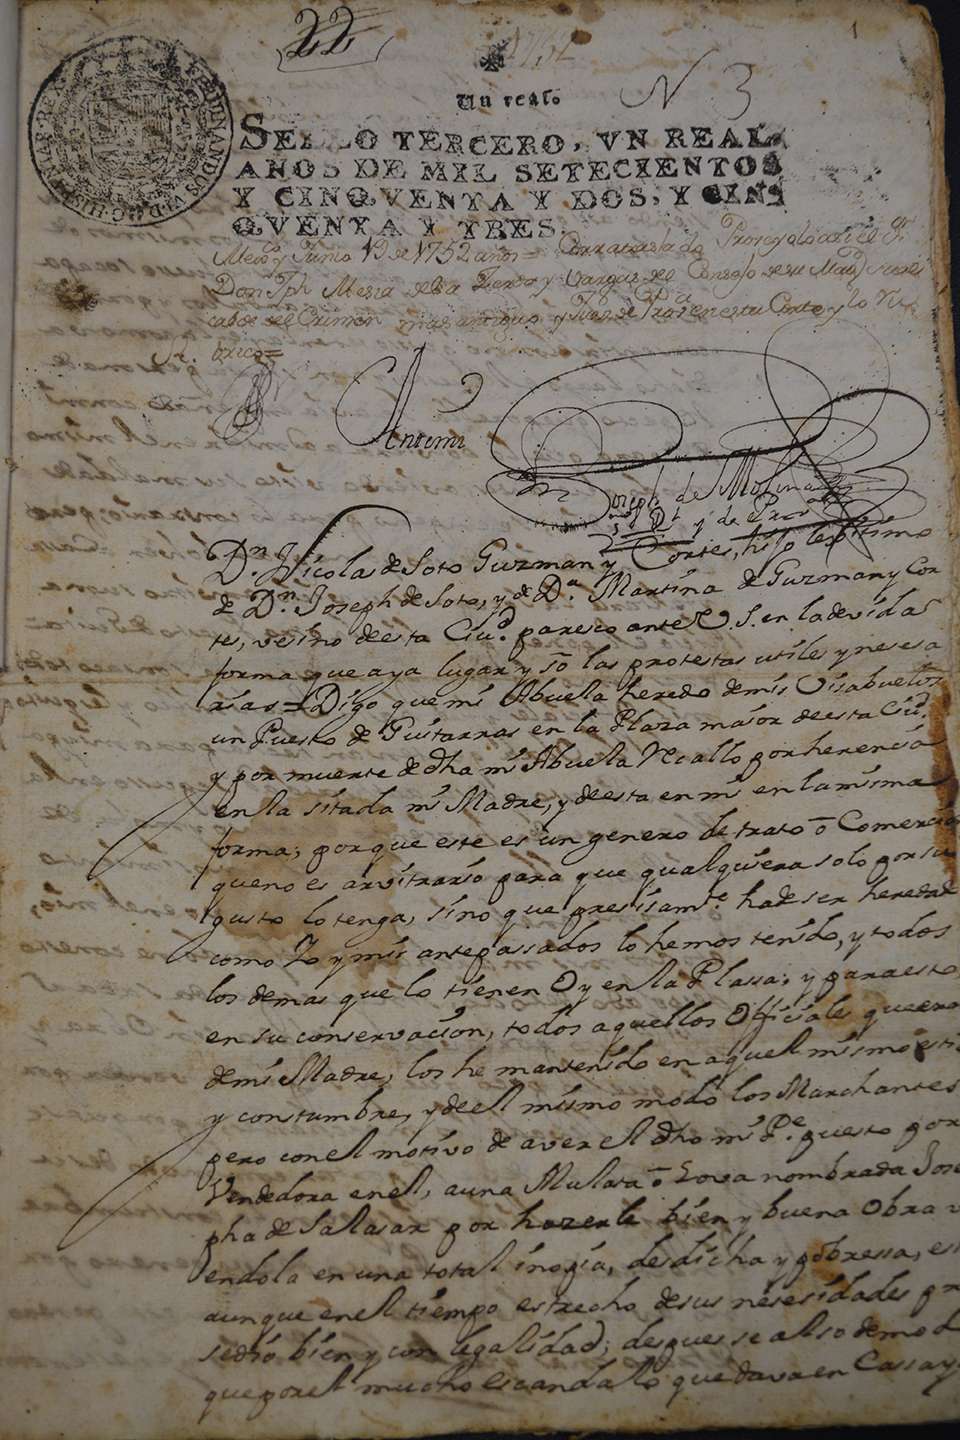 22
1
1752
Un real.
N 3
FERDINANDUS VI D G HISPANIAR REX
SELLO TERCERO, VN REAL
AÑOS DE MIL SETECIENTOS
Y CINQVENTA Y DOS, Y CIN-
QVENTA Y TRES.
Mexco y Junio 19 de 1752 años = Por traslado Proveyolo assi el Sr
Don Jph Mesia de la Zerda y Vargas del Consejo de su Magd
Alcalde del Crimen mas antiguo y Juez de Proa en esta Corte y lo
Antemi
Joseph de Molina
Dn Nicolas de Soto Guzman y Cortes, hijo lexitimo
de Dn Joseph de Soto, y de Da Martina de Guzman y Cor
tes, vesino de esta Ciud paresco ante V.S. en la devida
forma que aya lugar y so las protestas utiles y nesesa
rias = Digo que mi Abuela heredo de mis Visabuelos
un Puesto de Guitarras en la Plaza maior de esta Ciud
y por muerte de dha mi Abuela Recallo por herencia
en la sitada mi Madre, y de esta en mi en la misma
forma, por que este es un genero de trato o Comercio
que no es arvitrario para que qualquiera solo por su
gusto lo tenga, sino que presisamte ha de ser heredado
como Yo y mis antepassados lo hemos tenido, y todos
los demas que lo tienen Oy en la Plassa; y para esto
en su conservacion, todos aquellos Officiales que eran
de mi Madre, los he mantenido en aquel mismo esti
y constumbre, y de el mismo modo los Marchantes
pero con el motivo de aver el dho mi Pe puesto por
Vendedora en el, a una Mulata o Lova nombrada Jose
pha de Salasar por hazerle bien y buena Obra vi
endola en una total inopia, desdicha y pobressa, est
aunque en el tiempo estrecho de sus nesesidades pro
sedio bien y con legalidad; despues se also de mod
que por el mucho escandalo que dava en Cassa y